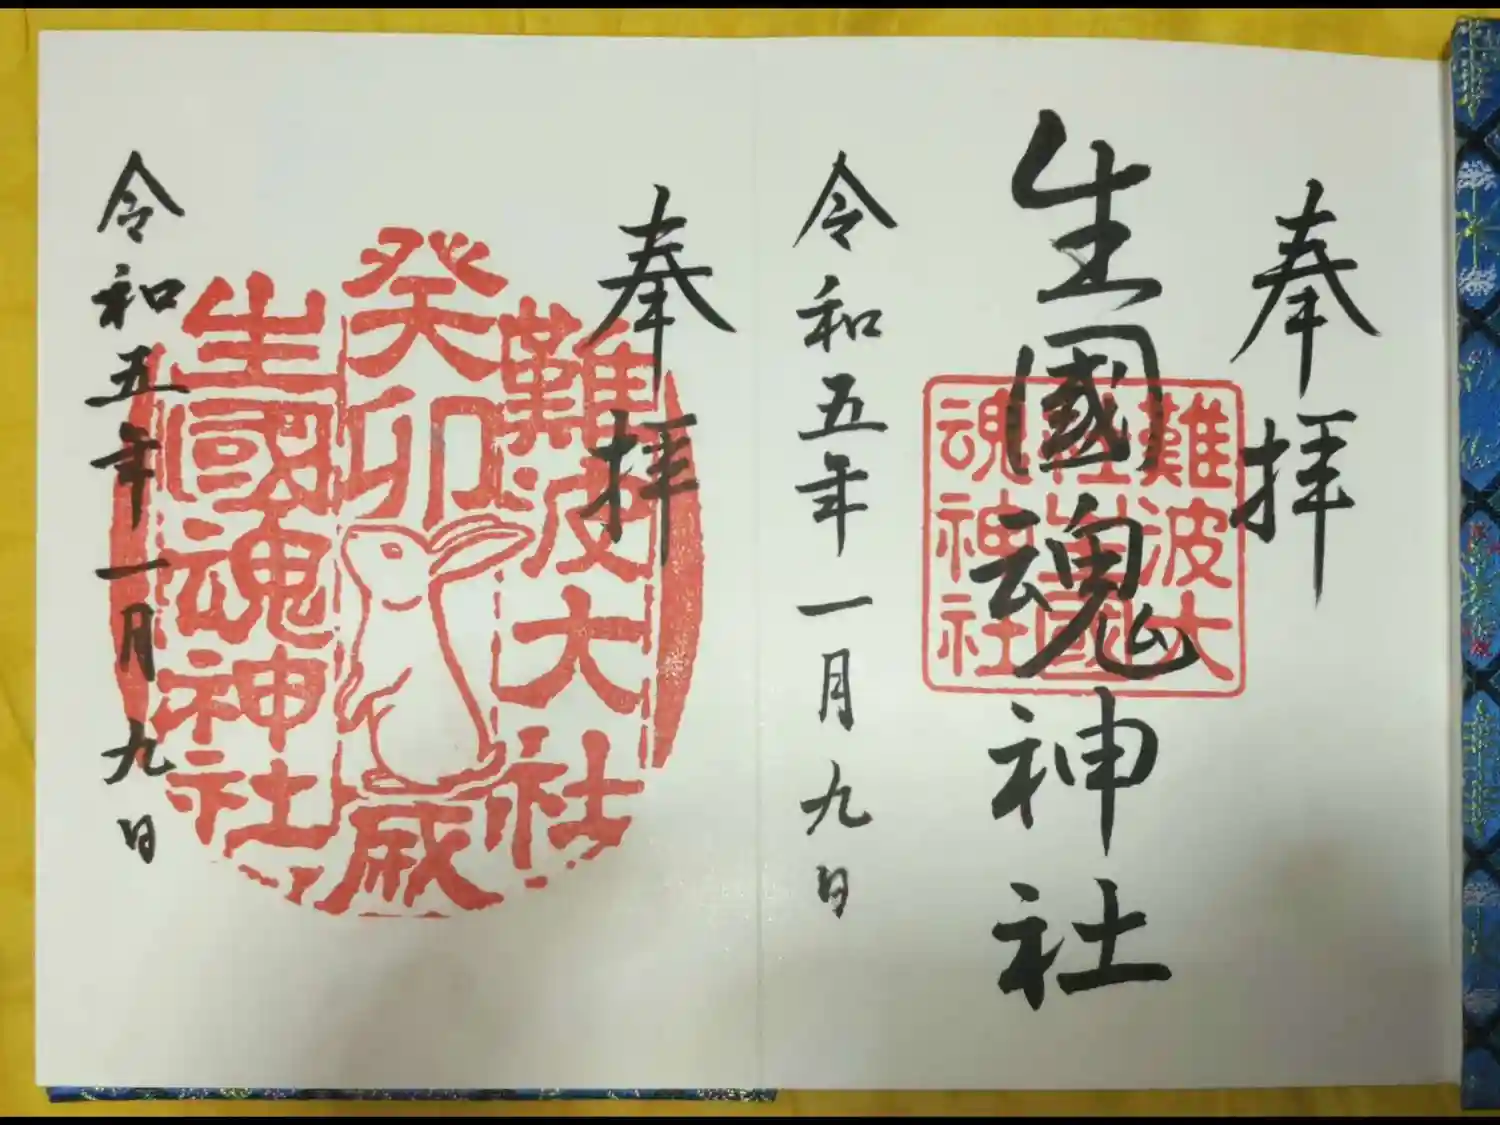 奉拝
生國魂神社
難波大
社生國
魂神社
令和五年一月九日
奉拝
難波大社
癸卯
歳
生國魂神社
令和五年一月九日